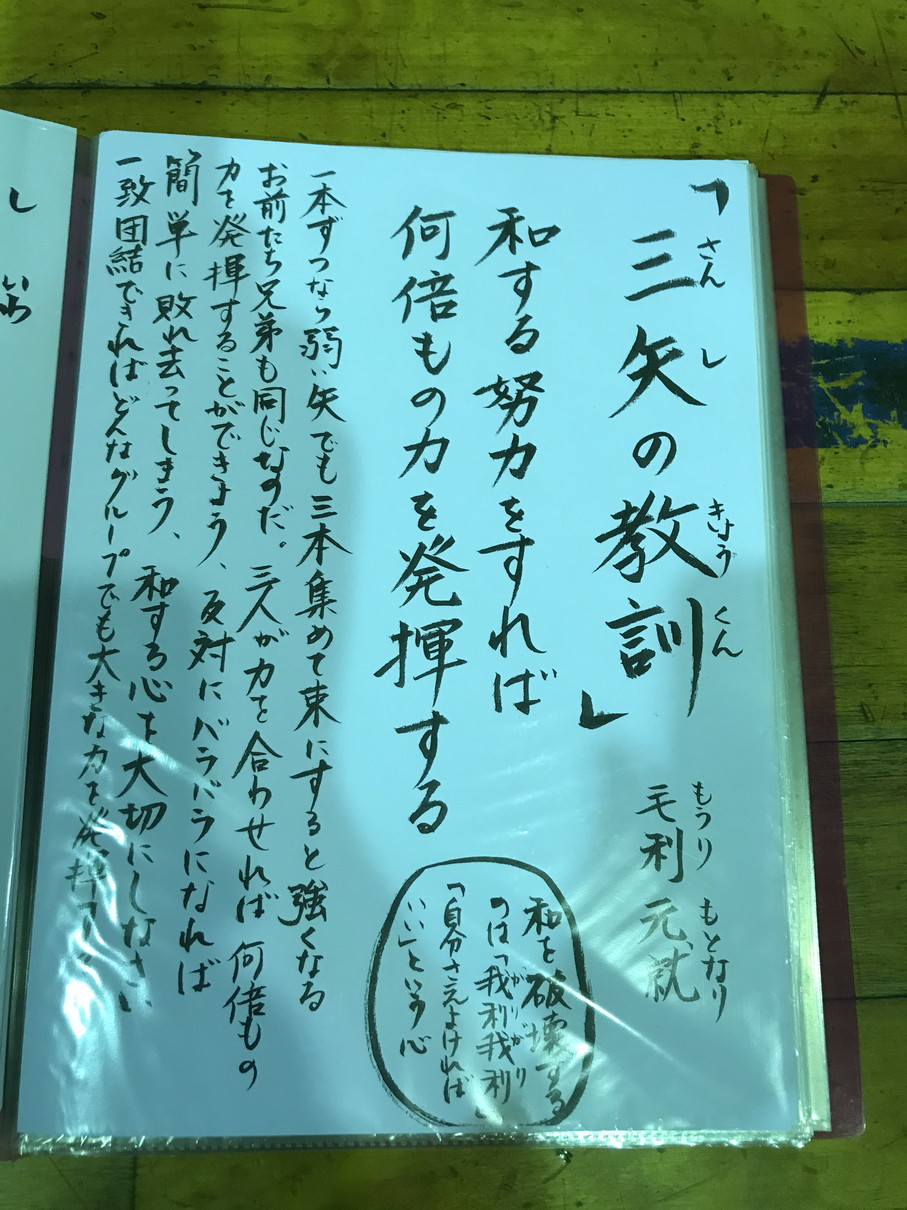 「三矢の教訓」
さん し きょう くん
毛利 元就
もうり もとなり
和する努力をすれば
何倍もの力を発揮する
和を破壊する
のは「我利我利」
がりがり
「自分さえよければ
いい」という心
一本ずつなら弱い矢でも三本集めて束にすると強くなる
お前たち兄弟も同じなすだ。三人が力を合わせれば何倍もの
力を発揮することができよう、反対にバラバラになれば
簡単に敗れ去ってしまう、和する心を大切にしなさい
一致団結できればどんなグループでも大きな力を発揮
し いわ